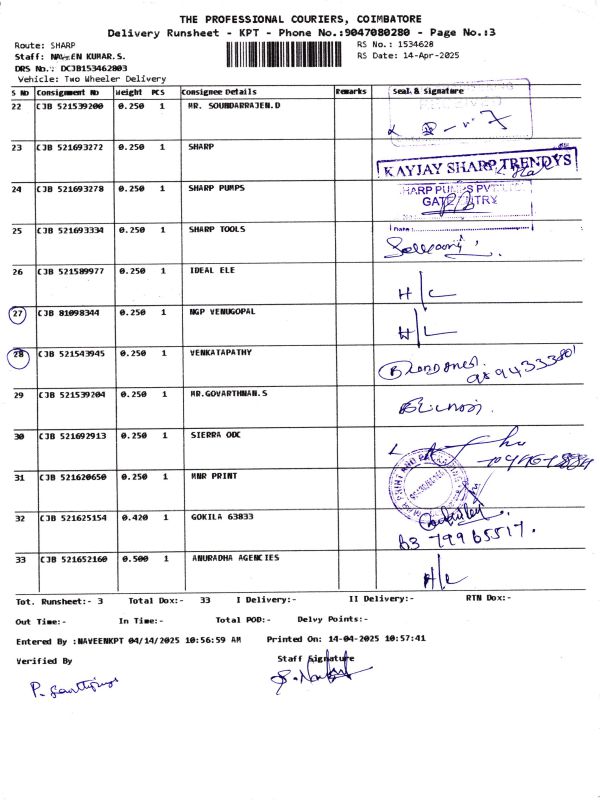 THE PROFESSIONAL COURIERS, COIMBATORE
Delivery Runsheet - KPT - Phone No.:9047080280 - Page No.:3
Route: SHARP
RS No.: 1534628
Staff: NAVEEN KUMAR.S.
RS Date: 14-Apr-2025
DRS No.: DCJB153462803
Vehicle: Two Wheeler Delivery
S No Consignment No Weight PCS Consignee Details Remarks Seal & Signature
22 CJB 521539200 0.250 1 MR. SOUNDARRAJEN.D
23 CJB 521693272 0.250 1 SHARP
KAYJAY SHARP TRENDYS
24 CJB 521693278 0.250 1 SHARP PUMPS
SHARP PUMPS PVT
GATE ENTRY
25 CJB 521693334 0.250 1 SHARP TOOLS
Date:
26 CJB 521589977 0.250 1 IDEAL ELE
H/L
27 CJB 81098344 0.250 1 NGP VENUGOPAL
H/L
28 CJB 521543945 0.250 1 VENKATAPATHY
29 CJB 521539204 0.250 1 MR.GOVARTHNAN.S
30 CJB 521692913 0.250 1 SIERRA ODC
31 CJB 521620650 0.250 1 MNR PRINT
32 CJB 521625154 0.420 1 GOKILA 63833
33 CJB 521652160 0.500 1 ANURADHA AGENCIES
H/L
Tot. Runsheet:- 3 Total Dox:- 33 I Delivery:- II Delivery:- RTN Dox:-
Out Time:- In Time:- Total POD:- Delvy Points:-
Entered By :NAVEENKPT 04/14/2025 10:56:59 AM Printed On: 14-04-2025 10:57:41
Verified By Staff Signature